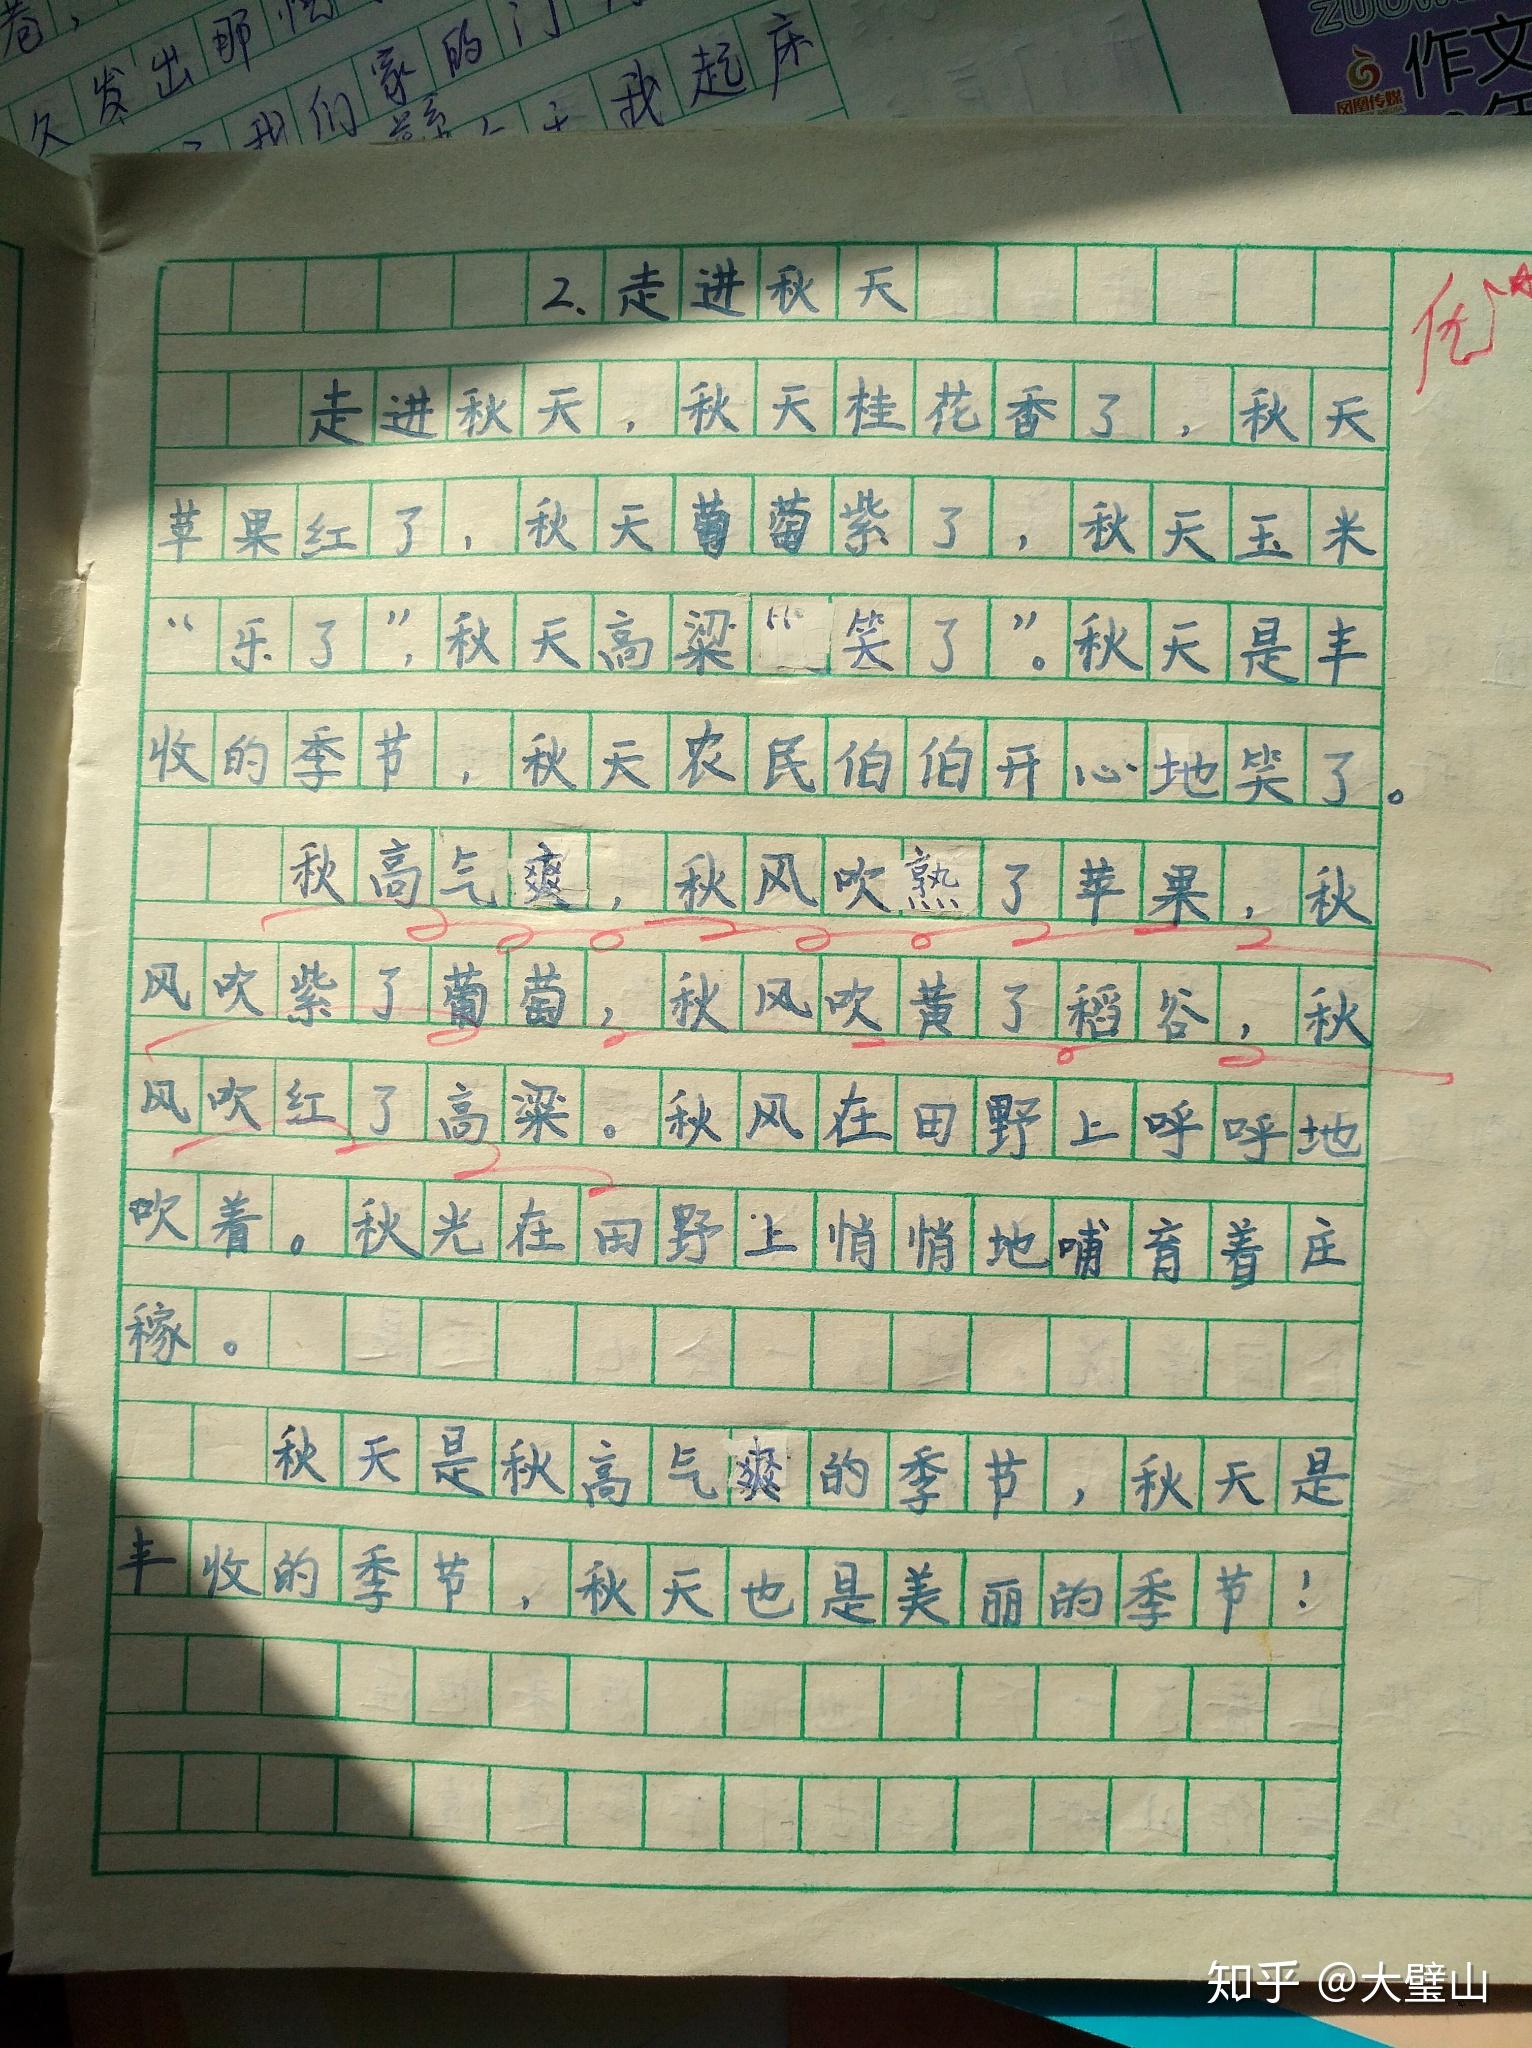 久发出那
我们家的门
天我起床
作文
凤凰传媒
2.走进秋天
优
走进秋天，秋天桂花香了，秋天
苹果红了，秋天葡萄紫了，秋天玉米
“乐了”，秋天高粱“笑了”。秋天是丰
收的季节，秋天农民伯伯开心地笑了。
秋高气爽，秋风吹熟了苹果，秋
风吹紫了葡萄，秋风吹黄了稻谷，秋
风吹红了高粱。秋风在田野上呼呼地
吹着。秋光在田野上悄悄地哺育着庄
稼。
秋天是秋高气爽的季节，秋天是
丰收的季节，秋天也是美丽的季节！
知乎 @大璧山